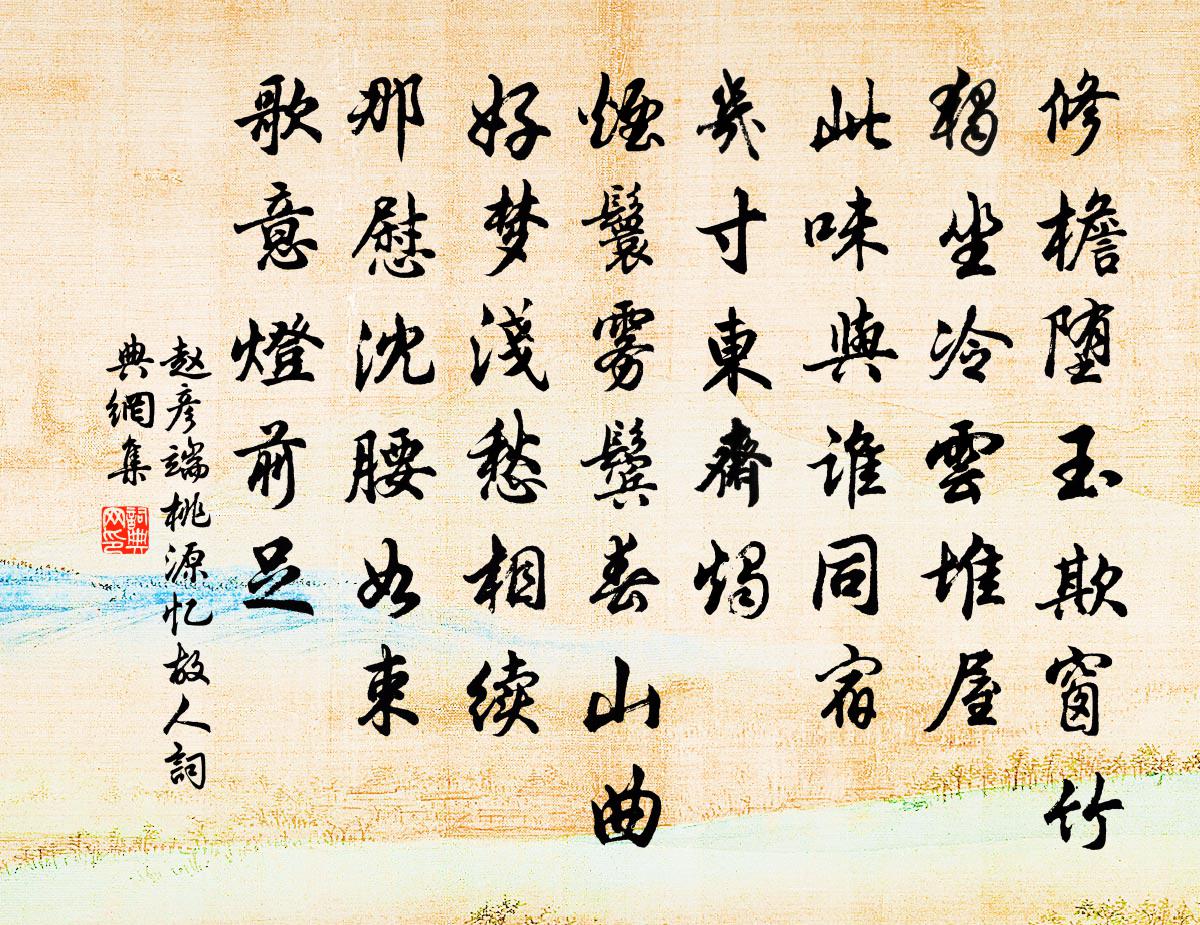 修檐堕玉欺窗竹
獨坐冷雲堆屋
此味與誰同宿
幾寸東齋燭
煙鬟雾鬢春山曲
好梦淺愁相续
那慰沈腰如束
歌意燈前足
赵彦端桃源忆故人詞
典網集
詞典网印